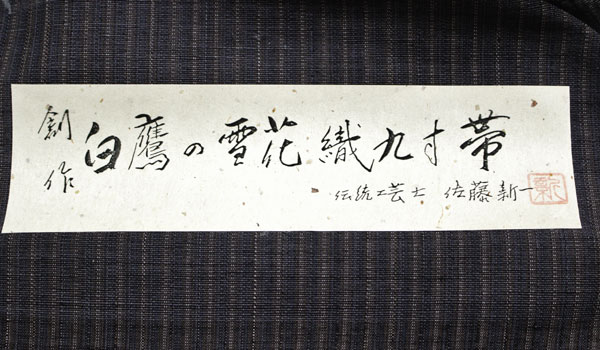 創作
白鷹の雪花織九寸帯
伝統工芸士 佐藤新一
新